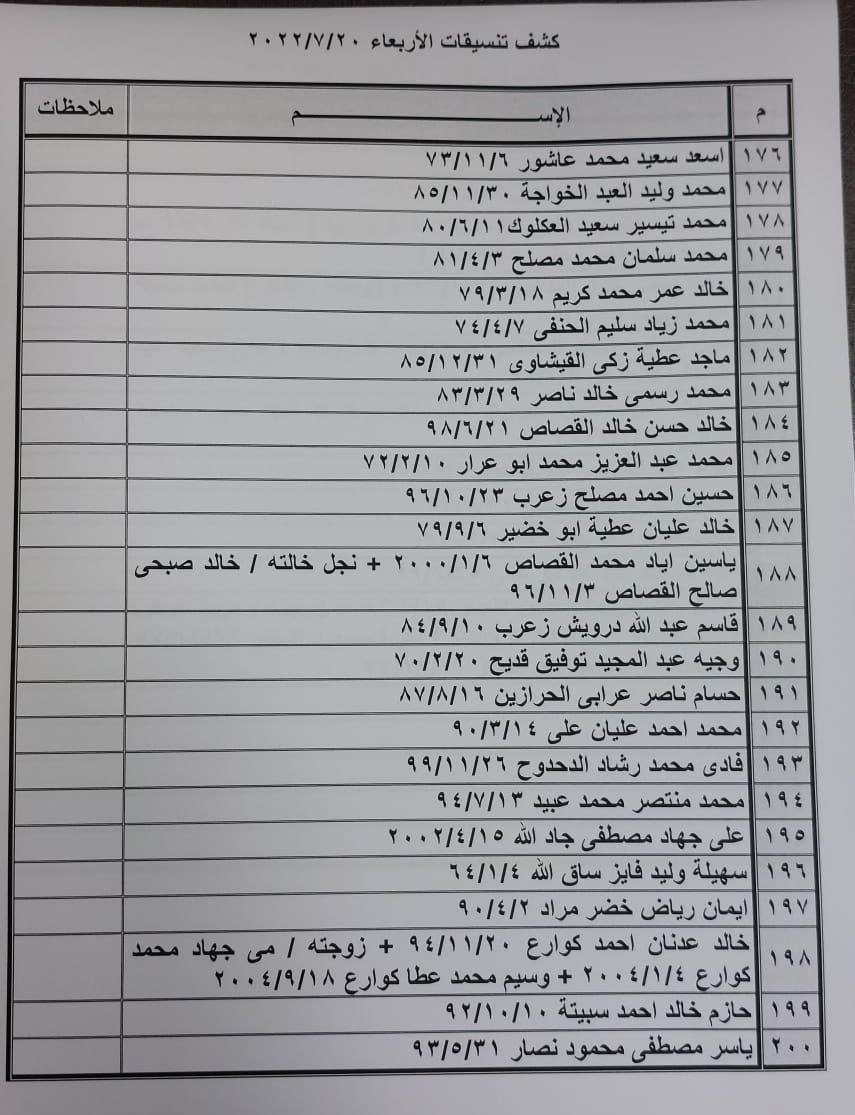 كشف تنسيقات الأربعاء ٢٠٢٢/٧/٢٠
م الإســــــــــــــــم ملاحظات
١٧٦ اسعد سعيد محمد عاشور ٧٣/١١/٦
١٧٧ محمد وليد العبد الخواجة ٨٥/١١/٣٠
١٧٨ محمد تيسير سعيد العكلوك٨٠/٦/١١
١٧٩ محمد سلمان محمد مصلح ٨١/٤/٣
١٨٠ خالد عمر محمد كريم ٧٩/٣/١٨
١٨١ محمد زياد سليم الحنفى ٧٤/٤/٧
١٨٢ ماجد عطية زكى القيشاوى ٨٥/١٢/٣١
١٨٣ محمد رسمى خالد ناصر ٨٣/٣/٢٩
١٨٤ خالد حسن خالد القصاص ٩٨/٦/٢١
١٨٥ محمد عبد العزيز محمد ابو عرار ٧٢/٢/١٠
١٨٦ حسين احمد مصلح زعرب ٩٦/١٠/٢٣
١٨٧ خالد عليان عطية ابو خضير ٧٩/٩/٦
١٨٨ ياسين اياد محمد القصاص ٢٠٠٠/١/٦ + نجل خالته / خالد صبحى
صالح القصاص ٩٦/١١/٣
١٨٩ قاسم عبد الله درويش زعرب ٨٤/٩/١٠
١٩٠ وجيه عبد المجيد توفيق قديح ٧٠/٢/٢٠
١٩١ حسام ناصر عرابى الحرازين ٨٧/٨/١٦
١٩٢ محمد احمد عليان على ٩٠/٣/١٤
١٩٣ فادى محمد رشاد الدحدوح ٩٩/١١/٢٦
١٩٤ محمد منتصر محمد عبيد ٩٤/٧/١٣
١٩٥ على جهاد مصطفى جاد الله ٢٠٠٢/٤/١٥
١٩٦ سهيلة وليد فايز ساق الله ٦٤/١/٤
١٩٧ ايمان رياض خضر مراد ٩٠/٤/٢
١٩٨ خالد عدنان احمد كوارع ٩٤/١١/٢٠ + زوجته / مى جهاد محمد
كوارع ٢٠٠٤/١/٤ + وسيم محمد عطا كوارع ٢٠٠٤/٩/١٨
١٩٩ حازم خالد احمد سبيتة ٩٢/١٠/١٠
٢٠٠ ياسر مصطفى محمود نصار ٩٣/٥/٣١